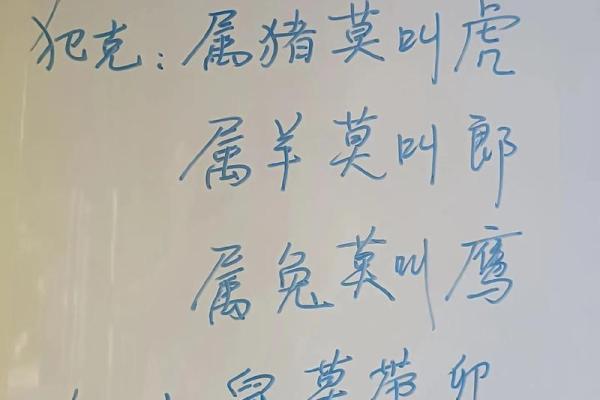 犯克：属猪莫叫虎
属羊莫叫郎
属兔莫叫鹰
鼠莫带卯